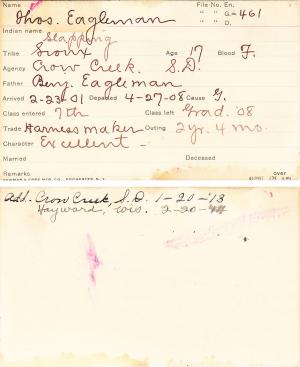 Name File-No. En.
Thos. Eagleman " " G-461
Indian name " " D.
Slapping
Tribe Sioux Age 17 Blood F.
Agency Crow Creek, S.D.
Father Benj. Eagleman
Arrived 2-23-01 Departed 4-27-08 Cause G.
Class entered 7th Class left Grad. '08
Trade Harnessmaker Outing 2 yr. 4 mo.
Character Excellent
Married Deceased
Remarks over
Add. Crow Creek, S.D. 1-20-'13
Hayward, Wis. 2-20-'14